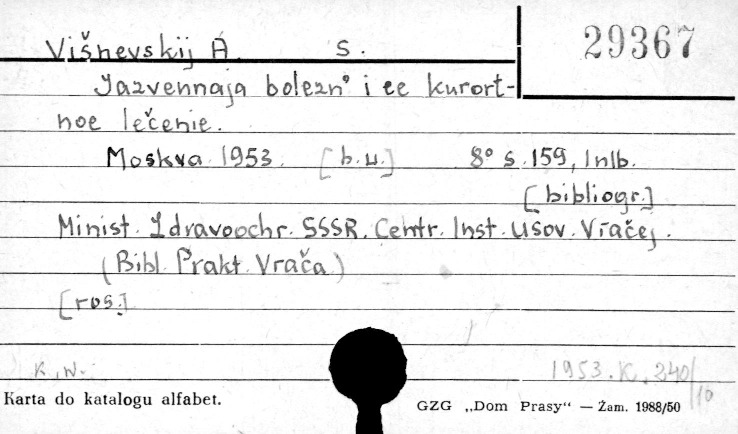 Višnevskij A. S.
29367
Jazvennaja bolezn° i ee kurort-
noe lečenie.
Moskva 1953. [b.u.] 8° s. 159, 1nlb.
[bibliogr.]
Minist. Zdravoochr. SSSR. Centr. Inst. Usov. Vračej.
(Bibl. Prakt. Vrača)
[ros.]
K.W. 1953.K.240/10
Karta do katalogu alfabet.
GZG „Dom Prasy“ — Zam. 1988/50